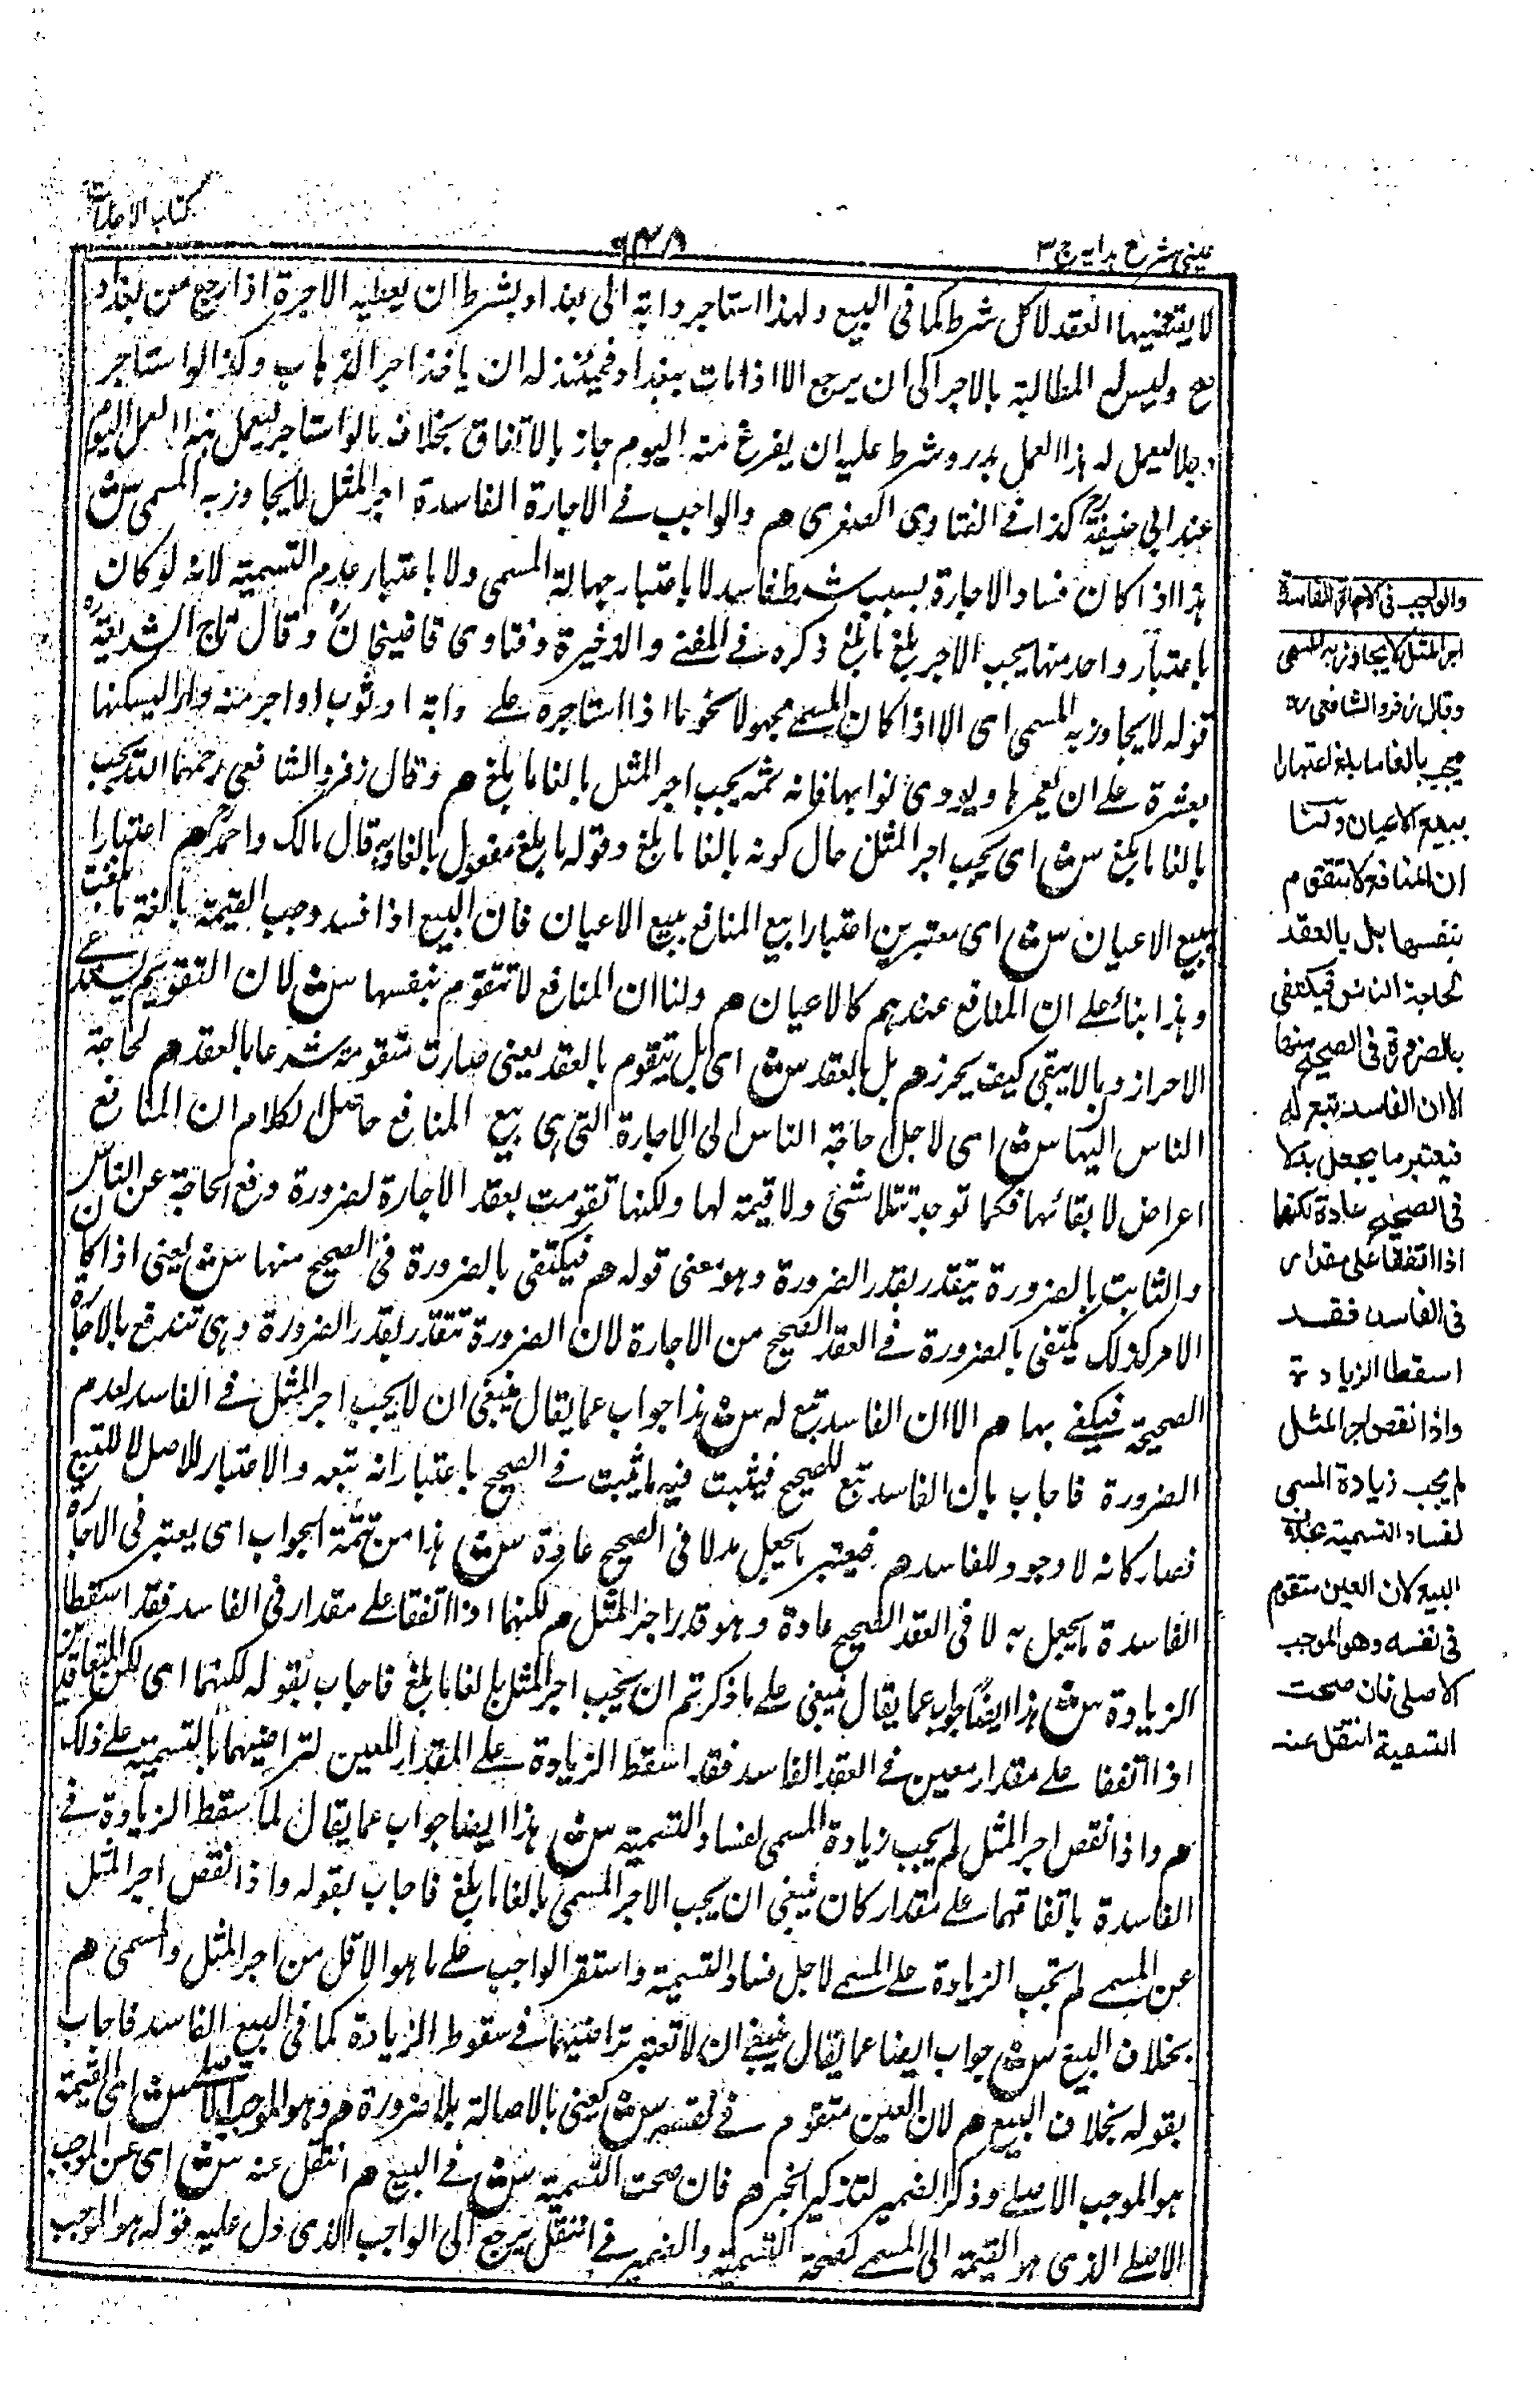 كتاب الاجارات
٩٣٨
عينى شرح هدايه ج ٣
لا يقتضيها العقد لا كل شرط كما فى البيع ولهذا استاجر دابة الى بغداد بشرط ان يعطيه الاجرة اذا رجع من بغداد
صح وليس له المطالبة بالاجر الى ان يرجع الا اذا مات ببغداد فحينئذ له ان ياخذ اجر الذهاب وكذا لو استاجر
رجلا ليعمل له هذا العمل بدر وشرط عليه ان يفرغ منه اليوم جاز بالاتفاق بخلاف ما لو استاجر ليعمل هذا العمل اليوم
عند ابى حنيفة رح كذا فے الفتاوى الصغرى هم والواجب فے الاجارة الفاسدة اجر المثل لا يجاوز به المسمى سش
هذا اذا كان فساد الاجارة بسبب شرط فاسد لا باعتبار جهالة المسمى ولا باعتبار عدم التسمية لانه لو كان
باعتبار واحد منها يجب الاجر بلغ ما بلغ ذكره فے المغنے والذخيرة وفتاوى قاضيخان وقال تاج الشريعة
قوله لا يجاوز به المسمى اى الا اذا كان المسمے مجهولا نحو ما اذا استاجره علے دابة او ثوب او اجر منه دارا ليسكنها
بعشرة علے ان يعمرها ويودى نوابها فانه ثمه يجب اجر المثل بالغا ما بلغ هم وقال زفر والشافعى رحمهما الله يجب
بالغا ما بلغ سش اى يجب اجر المثل حال كونه بالغا ما بلغ وقوله ما بلغ مفعول بالغا وبه قال مالك واحمد رح هم اعتبارا
ببيع الاعيان سش اى معتبرين اعتبارا بيع المنافع ببيع الاعيان فان البيع اذا فسد وجب القيمة بالغة ما بلغت
وهذا بناء علے ان المنافع عندهم كالاعيان هم ولنا ان المنافع لا تتقوم بنفسها سش لان التقويم يستدعے
الاحراز وما لا يبقى كيف يحرز هم بل بالعقد سش اى بل يتقوم بالعقد يعنى صارت متقومة شرعا بالعقد هم لحاجة
الناس اليها سش اى لاجل حاجة الناس الى الاجارة التى هى بيع المنافع حاصل الكلام ان المنافع
اعراض لا بقاء لها فكما توجد تتلاشى ولا قيمة لها ولكنها تقومت بعقد الاجارة لضرورة دفع الحاجة عن الناس
والثابت بالضرورة يتقدر بقدر الضرورة وهو معنى قوله هم فيكتفى بالضرورة فى الصحيح منها سش يعنى اذا كان
الامر كذلك يكتفى بالضرورة فے العقد الصحيح من الاجارة لان الضرورة تتقدر بقدر الضرورة وهى تندفع بالاجارة
الصحيحة فيكفے بها هم الا ان الفاسد تبع له سش هذا جواب عما يقال ينبغى ان لا يجب اجر المثل فے الفاسد لعدم
الضرورة فاجاب بان الفاسد تبع للصحيح فيثبت فيه ما يثبت فے الصحيح باعتبار انه تبعه والاعتبار للاصل لا للتبع
فصار كانه لا وجود للفاسد هم فيعتبر ما يجعل بدلا فى الصحيح عادة سش هذا من تتمة الجواب اى يعتبر فى الاجارة
الفاسدة ما يجعل بدلا فى العقد الصحيح عادة وهو قدر اجر المثل هم لكنهما اذا اتفقا علے مقدار فى الفاسد فقد اسقطا
الزيادة سش هذا ايضا جواب عما يقال ينبغى علے ما ذكرتم ان يجب اجر المثل بالغا ما بلغ فاجاب بقوله لكنهما اى لكن المتعاقدين
اذا اتفقا علے مقدار معين فے العقد الفاسد فقد اسقطا الزيادة علے المقدار المعين لتراضيهما بالتسمية علے ذلك
هم واذا نقص اجر المثل لم يجب زيادة المسمى لفساد التسمية سش هذا ايضا جواب عما يقال لما سقط الزيادة فے
الفاسدة باتفاقهما علے مقدار كان ينبغى ان يجب الاجر المسمى بالغا ما بلغ فاجاب بقوله واذا نقص اجر المثل
عن المسمے لم تجب الزيادة علے المسمے لاجل فساد التسمية واستقر الواجب علے ما هو الاقل من اجر المثل والمسمى هم
بخلاف البيع سش جواب ايضا عما يقال ينبغے ان لا تعتبر تراضيهما فے سقوط الزيادة كما فى البيع الفاسد فاجاب
بقوله بخلاف البيع هم لان العين متقوم فے نفسه سش يعنى بالاصالة بلا ضرورة هم وهو الموجب الاصلے سش اى القيمة
هو الموجب الاصلے وذكر الضمير لتذكير الخبر هم فان صحت التسمية سش فے البيع هم انتقل عنه سش اى عن الموجب
الاصلے الذى هو القيمة الى المسمے لصحة التسمية والضمير فے انتقل يرجع الى الواجب الذى دل عليه قوله هو الموجب
والواجب فى الاجارة الفاسدة
اجر المثل لا يجاوز به المسمى
وقال زفر والشافعى رح
يجب بالغا ما بلغ اعتبارا
ببيع الاعيان ولنا
ان المنافع لا تتقوم
بنفسها بل بالعقد
لحاجة الناس فيكتفى
بالضرورة فى الصحيح منها
الا ان الفاسد تبع له
فيعتبر ما يجعل بدلا
فى الصحيح عادة لكنهما
اذا اتفقا على مقدار
فى الفاسد فقد
اسقطا الزيادة
واذا نقص اجر المثل
لم يجب زيادة المسمى
لفساد التسمية بخلاف
البيع لان العين متقوم
فى نفسه وهو الموجب
الاصلى فان صحت
التسمية انتقل عنه